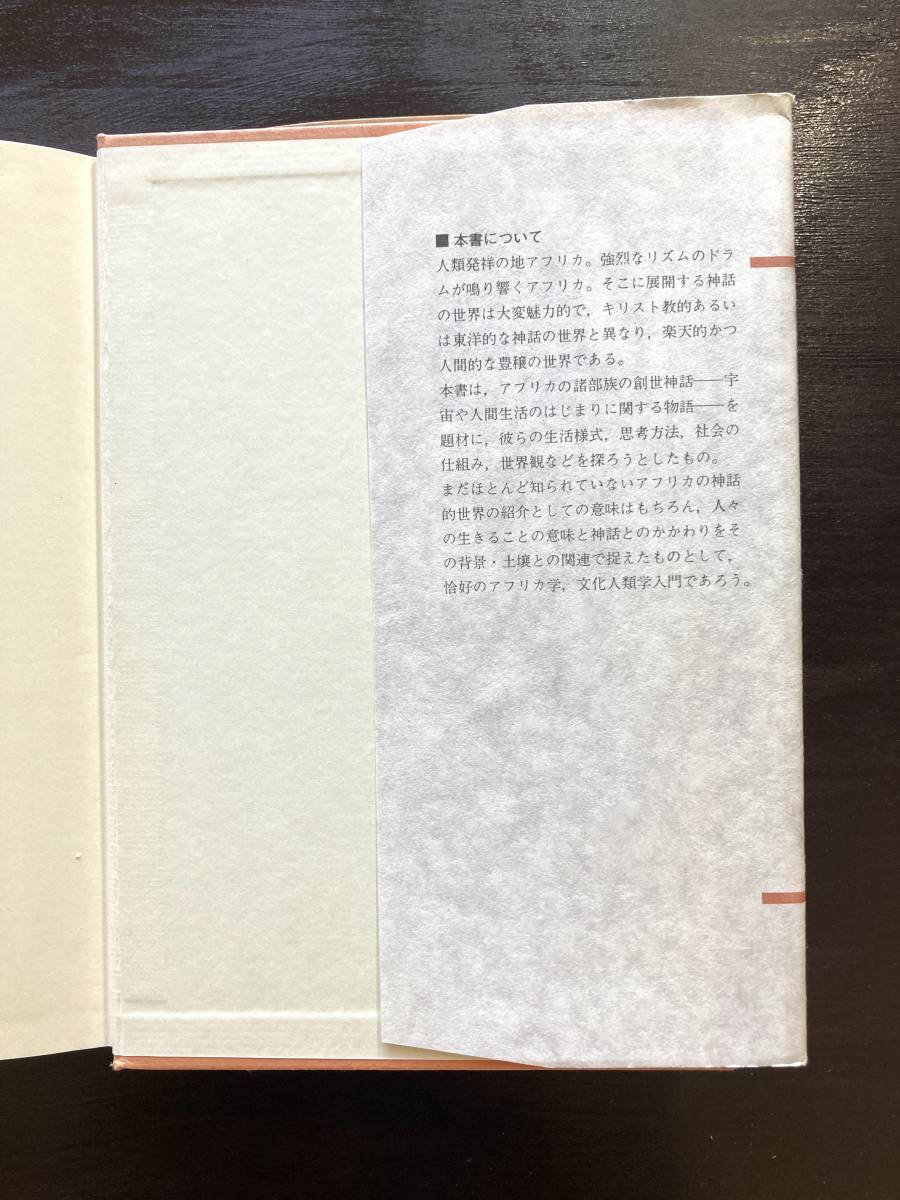 ■ 本書について
人類発祥の地アフリカ。強烈なリズムのドラ
ムが鳴り響くアフリカ。そこに展開する神話
の世界は大変魅力的で，キリスト教的あるい
は東洋的な神話の世界と異なり，楽天的かつ
人間的な豊穣の世界である。
本書は，アフリカの諸部族の創世神話――宇
宙や人間生活のはじまりに関する物語――を
題材に，彼らの生活様式，思考方法，社会の
仕組み，世界観などを探ろうとしたもの。
まだほとんど知られていないアフリカの神話
的世界の紹介としての意味はもちろん，人々
の生きることの意味と神話とのかかわりをそ
の背景・土壌との関連で捉えたものとして，
恰好のアフリカ学，文化人類学入門であろう。